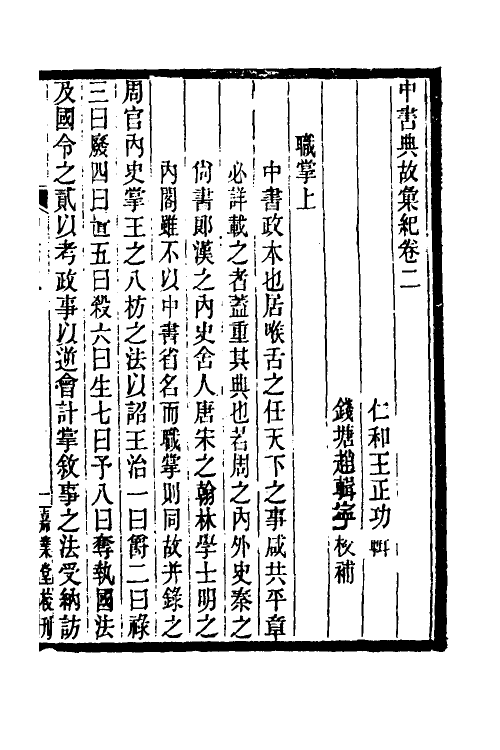 中書典故彙紀卷二
仁和王正功輯
錢塘趙輯寧校補
職掌上
中書政本也居喉舌之任天下之事咸共平章
必詳載之者蓋重其典也若周之內外史秦之
尙書郞漢之內史舍人唐宋之翰林學士明之
內閣雖不以中書省名而職掌則同故并錄之
周官內史掌王之八枋之法以詔王治一曰爵二曰祿
三曰廢四曰置五曰殺六曰生七曰予八曰奪執國法
及國令之貳以考政事以逆會計掌敘事之法受納訪
一 嘉業堂校刊